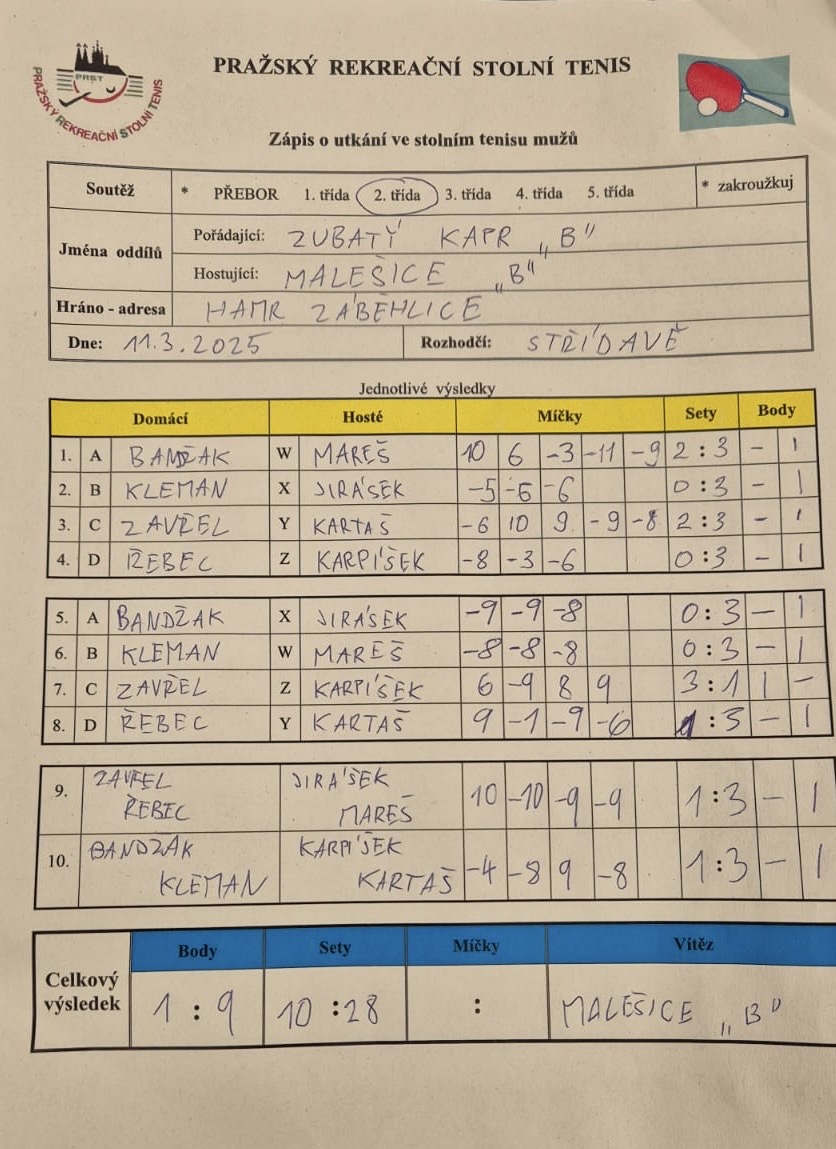 PRST
PRAŽSKÝ REKREAČNÍ STOLNÍ TENIS
PRAŽSKÝ REKREAČNÍ STOLNÍ TENIS
Zápis o utkání ve stolním tenisu mužů
Soutěž * PŘEBOR 1. třída 2. třída 3. třída 4. třída 5. třída * zakroužkuj
Jména oddílů
Pořádající: ZUBATÝ KAPR „B"
Hostující: MALEŠICE „B"
Hráno - adresa HAMR ZÁBĚHLICE
Dne: 11.3.2025 Rozhodčí: STŘÍDAVĚ
Jednotlivé výsledky
Domácí Hosté Míčky Sety Body
1. A BANDŽAK W MAREŠ 10 6 -3 -11 -9 2:3 - 1
2. B KLEMAN X JIRÁSEK -5 -6 -6 0:3 - 1
3. C ZAVŘEL Y KARTAŠ -6 10 9 -9 -8 2:3 - 1
4. D ŘEBEC Z KARPÍŠEK -8 -3 -6 0:3 - 1
5. A BANDŽAK X JIRÁSEK -9 -9 -8 0:3 - 1
6. B KLEMAN W MAREŠ -8 -8 -8 0:3 - 1
7. C ZAVŘEL Z KARPÍŠEK 6 -9 8 9 3:1 1 -
8. D ŘEBEC Y KARTAŠ 9 -1 -9 -6 1:3 - 1
9. ZAVŘEL ŘEBEC JIRÁSEK MAREŠ 10 -10 -9 -9 1:3 - 1
10. BANDŽAK KLEMAN KARPÍŠEK KARTAŠ -4 -8 9 -8 1:3 - 1
Body Sety Míčky Vítěz
Celkový výsledek 1:9 10:28 : MALEŠICE „B"